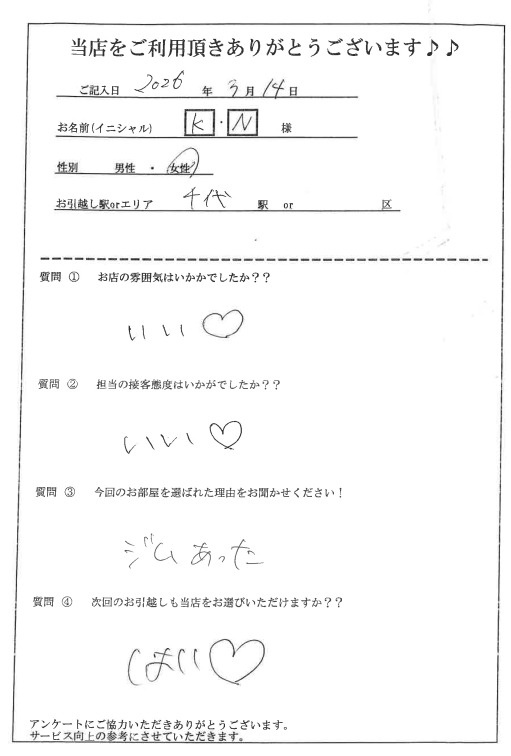 当店をご利用頂きありがとうございます♪♪
ご記入日 2026 年 3 月 14 日
お名前(イニシャル) K ・ N 様
性別 男性 ・ 女性
お引越し駅orエリア 千代 駅 or 区
質問 ① お店の雰囲気はいかかでしたか？？
いい♡
質問 ② 担当の接客態度はいかがでしたか？？
いいい♡
質問 ③ 今回のお部屋を選ばれた理由をお聞かせください！
ジムあった
質問 ④ 次回のお引越しも当店をお選びいただけますか？？
はい♡
アンケートにご協力いただきありがとうございます。
サービス向上の参考にさせていただきます。